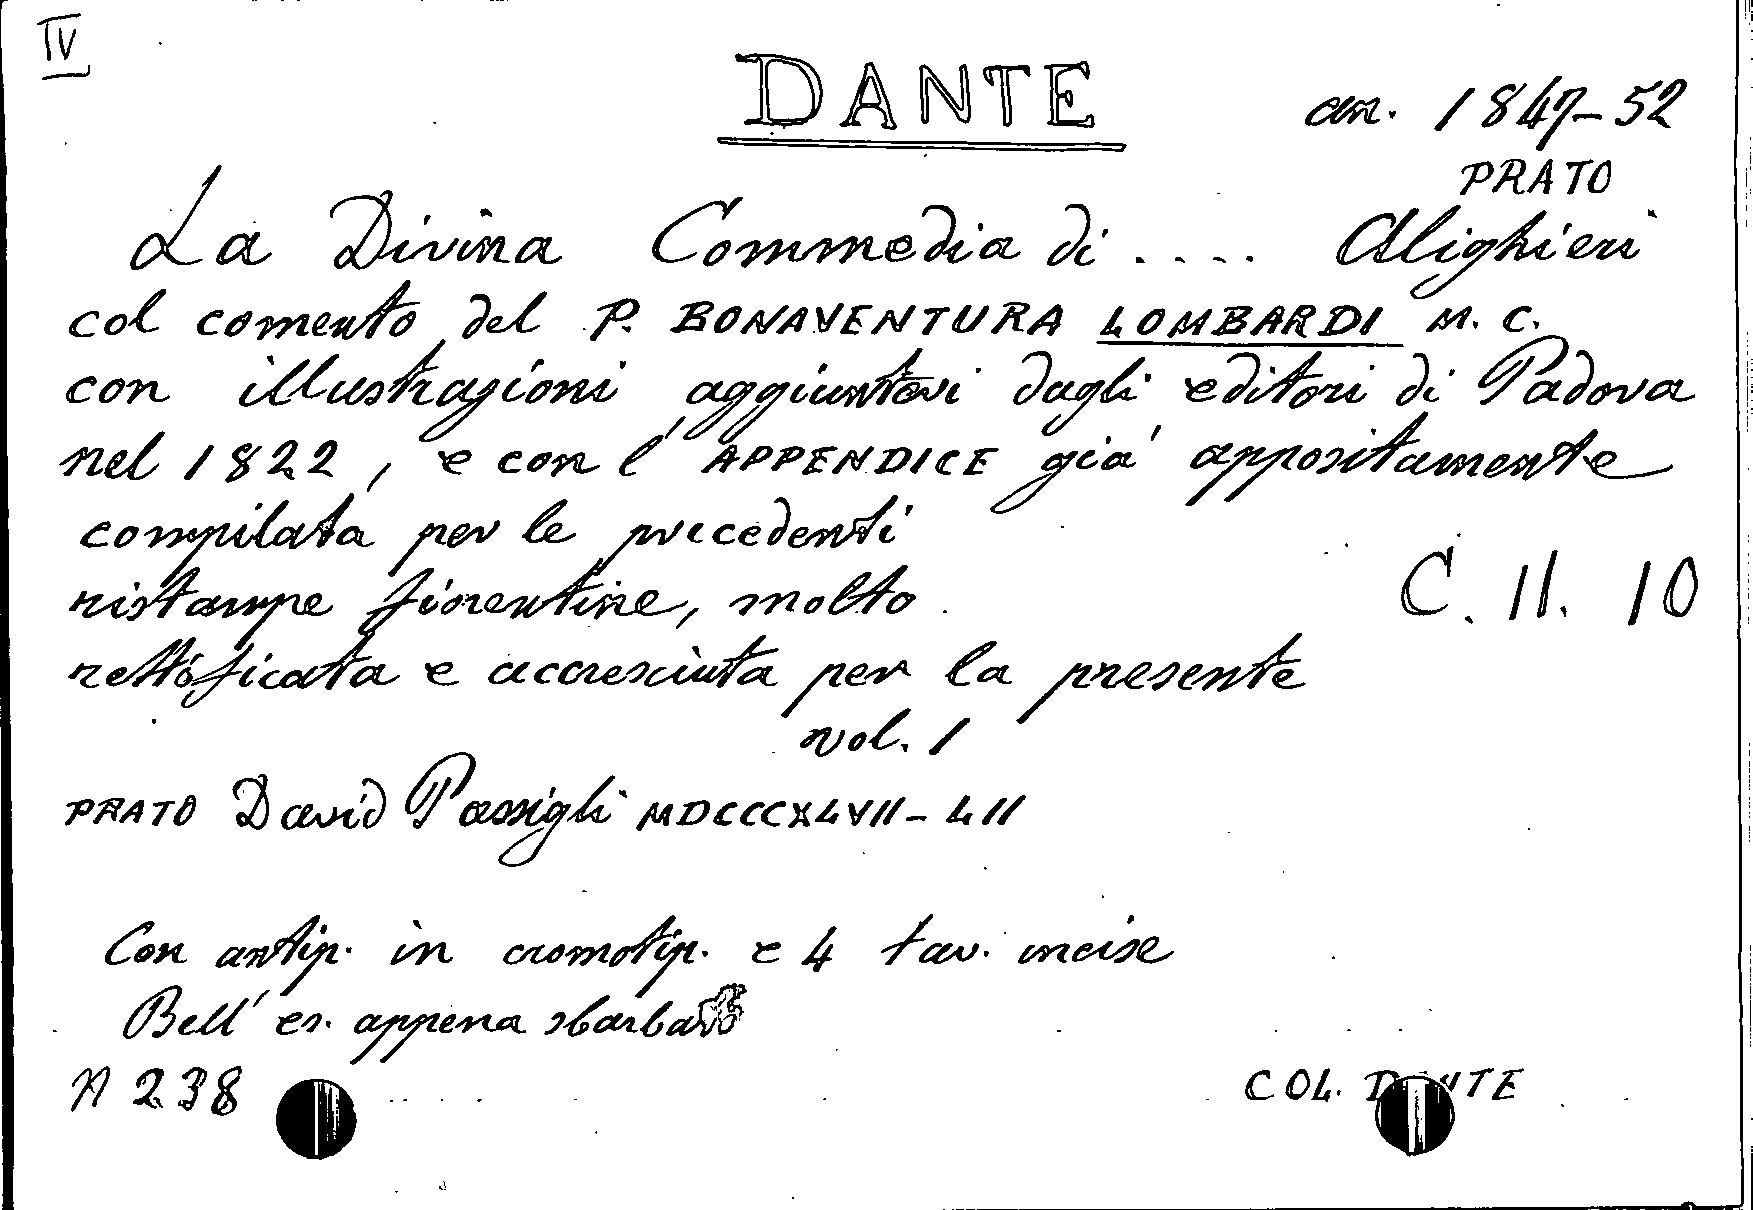 IV
DANTE
an. 1847-52
PRATO
La Divina Commedia di .... Alighieri
col comento del P. BONAVENTURA LOMBARDI M. C.
con illustrazioni aggiuntevi dagli editori di Padova
nel 1822, e con l'APPENDICE già appositamente
compilata per le precedenti
ristampe fiorentine, molto
C. 11. 10
rettificata e accresciuta per la presente
vol. 1
PRATO David Passigli MDCCCXLVII-LII
Con antip. in cromotip. e 4 tav. incise
Bell' es. appena sbarbato
A 238
COL. DANTE